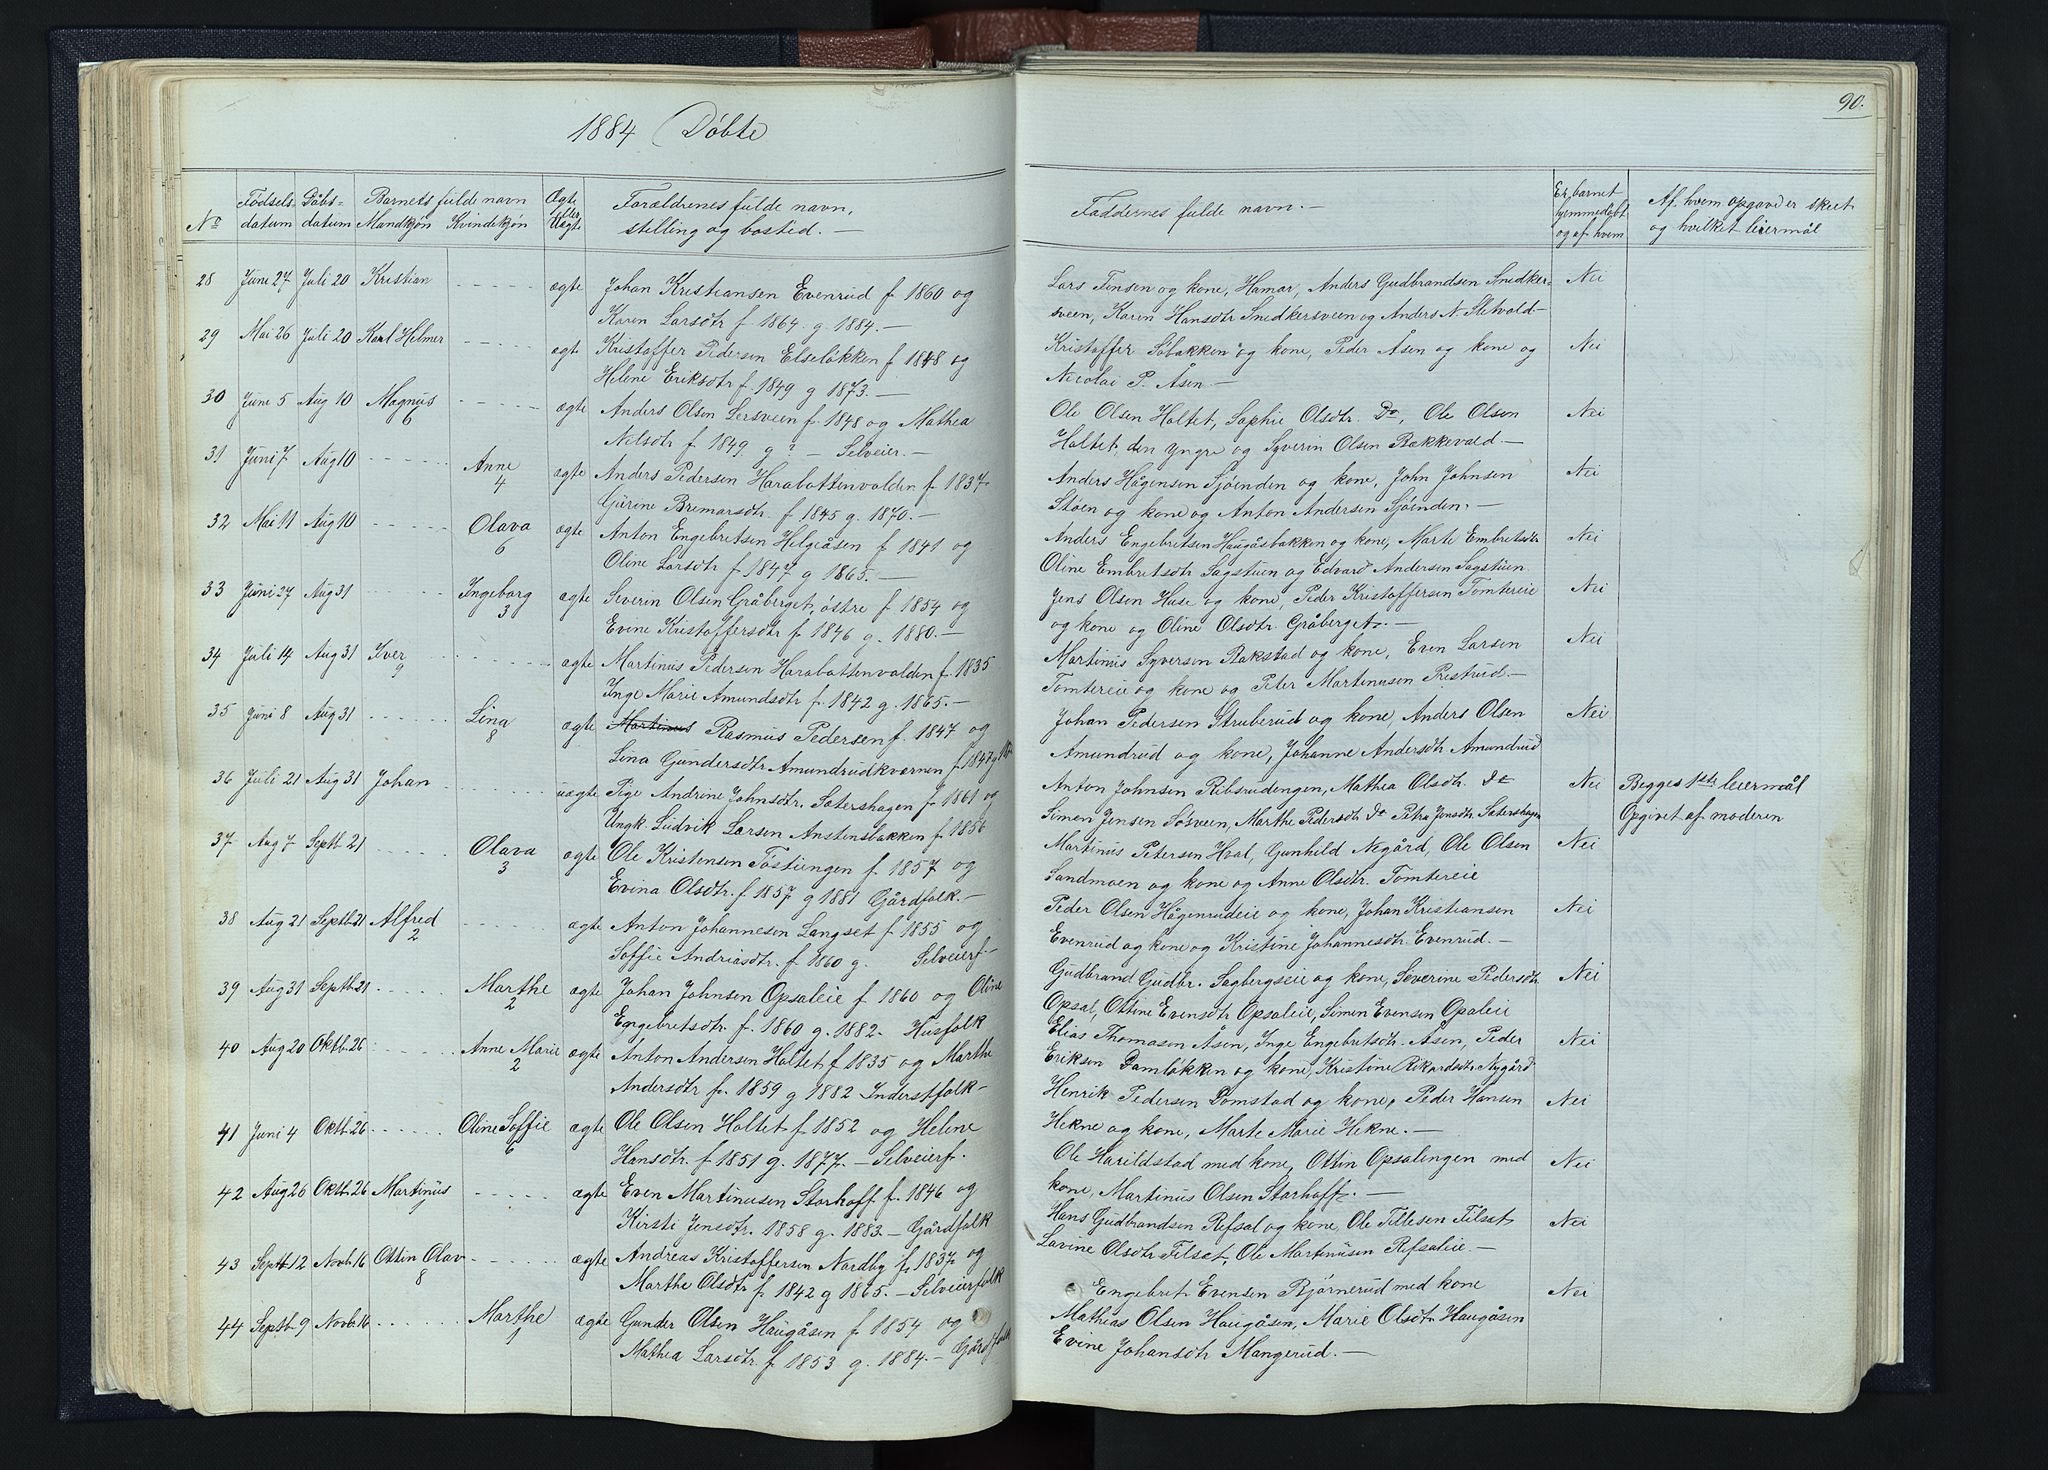 1884 Döbte
90.
No Fødsels datum Dåbs- datum Barnets fulde navn Mandkjön Kvindekjön Ægte eller Uægte Forældrenes fulde navn, stilling og bosted. —
Faddernes fulde navn. — Er barnet hjemmedøbt og af hvem Af hvem opgave er skeet og hvilket leiermål
28 Juni 27 Juli 20 Kristian - - - - - ægte Johan Kristiansen Evenrud f. 1860 og
Karen Larsdtr f 1864. g. 1884. —
29 Mai 26 Juli 20 Karl Helmer - - - - - ægte Kristoffer Pedersen Elseløkken f 1848 og
Helene Eriksdtr f 1849 g 1873. —
30 Juni 5 Aug 10 Magnus 6 - - - - - ægte Anders Olsen Lersveen f. 1848 og Mathea
Nilsdtr f 1849 g ? — Selveier. —
31 Juni 7 Aug 10 - - - - - Anne 4 ægte Anders Pedersen Harabattenvolden f 1837
Gurine Bremarsdtr. f 1845 g. 1870. —
32 Mai 11 Aug 10 - - - - - Olava 6 ægte Anton Engebretsen Helgeåsen f 1841 og
Oline Larsdtr f 1847 g 1865. —
33 Juni 27 Aug 31 - - - - - Ingeborg 3 ægte Severin Olsen Gråberget, østre f 1854 og
Evine Kristoffersdtr f 1846 g. 1880. —
34 Juli 14 Aug 31 Iver 9 - - - - - ægte Martinus Pedersen Harabattenvolden f. 1835
Inge Marie Amundsdtr f. 1842 g. 1865. —
35 Juni 8 Aug 31 - - - - - Lina 8 ægte Martinus Rasmus Pedersen f. 1847 og
Lina Gundersdtr Amundrudkvernen f 1847 g
36 Juli 21 Aug 31 Johan - - - - - uægte Pige Andrine Johnsdtr. Sætershagen f 1861 og
Ungk. Ludvik Larsen Anstensbakken f 1856
37 Aug 7 Septb 21 - - - - - Olava 3 ægte Ole Kristensen Tostiengen f. 1857 og
Evina Olsdtr. f 1857 g 1881 Gårdfolk. —
38 Aug 21 Septb 21 Alfred 2 - - - - - ægte Anton Johannesen Langset f 1855 og
Soffie Andriasdtr. f 1860 g. Selveierf —
39 Aug 31 Septb 21 - - - - - Marthe 2 ægte Johan Johnsen Opsaleie f 1860 og Oline
Engebretsdtr. f. 1860 g. 1882. Husfolk
40 Aug 20 Oktb. 26 - - - - - Anne Marie 2 ægte Anton Andersen Holtet f 1835 og Marthe
Andersdtr f. 1859 g 1882 Inderstfolk —
41 Juni 4 Oktb 26 - - - - - Oline Soffie 6 ægte Ole Olsen Holtet f 1852 og Helene
Hansdtr. f 1851 g. 1877. — Selveierf.
42 Aug 26 Oktb 26 Martinus - - - - - ægte Even Martinusen Storhoff f. 1846 og
Kirsti Jensdtr. 1858 g. 1883. — Gårdfolk
43 Septb 12 Novb. 16 Ottin Olav 8 - - - - - ægte Andreas Kristoffersen Nordby f. 1837 og
Marthe Olsdtr f 1842 g 1865. — Selveierfolk
44 Septb 9 Novb. 16 - - - - - Marthe 1 ægte Gunder Olsen Haugåsen f 1854 og
Mathea Larsdtr. f. 1853 g. 1884. — Gårdfolk
Lars Tonsen og kone, Hamar, Anders Gudbrandsen Snedker- Nei
sveen, Karen Hansdtr Snedkersveen og Anders N. Sletvold. —
Kristoffer Sobakken og kone, Peder Åsen og kone og Nei
Nicolai P. Åsen —
Ole Olsen Holtet, Sophie Olsdtr. Do, Ole Olsen Nei
Holtet, den yngre og Syverin Olsen Bakkevold. —
Anders Hågensen Sjöenden og kone, John Johnsen Nei
Stöen og kone og Anton Andersen Sjöenden. —
Anders Engebretsen Haugåsbakken og kone, Marte Embretsdtr Nei
Oline Embretsdtr Sagstuen og Edvard Andersen Sagstuen.
Jens Olsen Huse og kone, Peder Kristoffersen Tomtereie Nei
og kone og Oline Olsdtr. Gråberget. —
Martinus Syversen Bakstad og kone, Even Larsen Nei
Tomtereie og kone og Peter Martinusen Prestrud. —
Johan Pedersen Struberud og kone, Anders Olsen Nei
Amundrud og kone, Johanne Andersdtr Amundrud
Anton Johnsen Ribsrudengen, Mathea Olsdtr. Do Nei Begges 1ste leiermål
Simen Jensen Søsveen, Marthe Pedersdtr Do Petra Jensdtr. Sætershagen Opgivet af moderen
Martinus Petersen Hval, Gunhild Negård, Ole Olsen Nei
Sandmoen og kone og Anne Olsdtr. Tomtereie
Peder Olsen Hågenrudeie og kone, Johan Kristiansen Nei
Evenrud og kone og Kristine Johannesdtr. Evenrud. —
Gudbrand Gudbr. Sagbergseie og kone, Severine Pedersdtr Nei
Opsal, Ottine Evensdtr Opsaleie, Simen Evensen Opsaleie
Elias Thomasen Åsen, Inge Engebretsdtr. Åsen, Peder Nei
Eriksen Damløkken og kone, Kristine Rikardsdtr Nygård
Henrik Pedersen Domstad og kone, Peder Hansen Nei
Hekne og kone, Marte Marie Hekne. —
Ole Harildstad med kone, Ottin Opsalengen med Nei
kone, Martinus Olsen Storhoff. —
Hans Gudbrandsen Refsal og kone, Ole Tillesen Tilset Nei
Lavine Olsdtr Tilset, Ole Martinusen Refsaleie. —
Engebret Evensen Bjørnerud med kone Nei
Mathias Olsen Haugåsen, Marie Olsdtr Haugåsen
Evine Johansdtr Mangerud. —